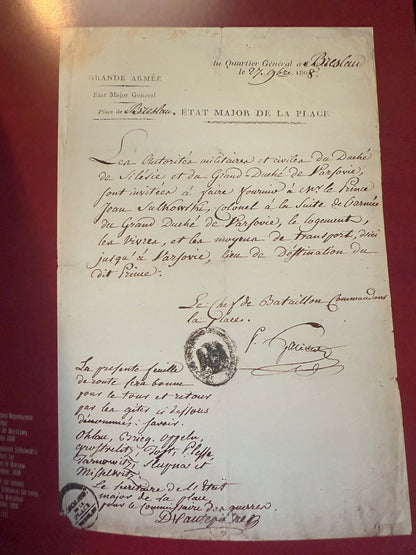 au Quartier Général à Breslau
le 27. 9bre 1808.
GRANDE ARMÉE
Etat Major Général
Place de Breslau. ETAT MAJOR DE LA PLACE
Les Autorités militaires et civiles du Duché
de Silésie et du Grand Duché de Varsovie,
sont invitées à faire fournir à Mr. le Prince
Jean Sulkowski, Colonel à la Suite de l'armée
du Grand Duché de Varsovie, le logement,
les vivres, et les moyens de transport, d'ici
jusqu'à Varsovie, lieu de Destination du
dit Prince.
Le Chef de Bataillon Commandant
la place.
La presente feuille
de route sera bonne
pour le tour et retour
par les gites ci dessous
dénommés: savoir.
Ohlau, Brieg, Oppeln
Grosstrelitz, Tost, Plesse
Tarnowitz, et
Le secretaire de l'Etat
major de la place,
pour le Commissaire des guerres.